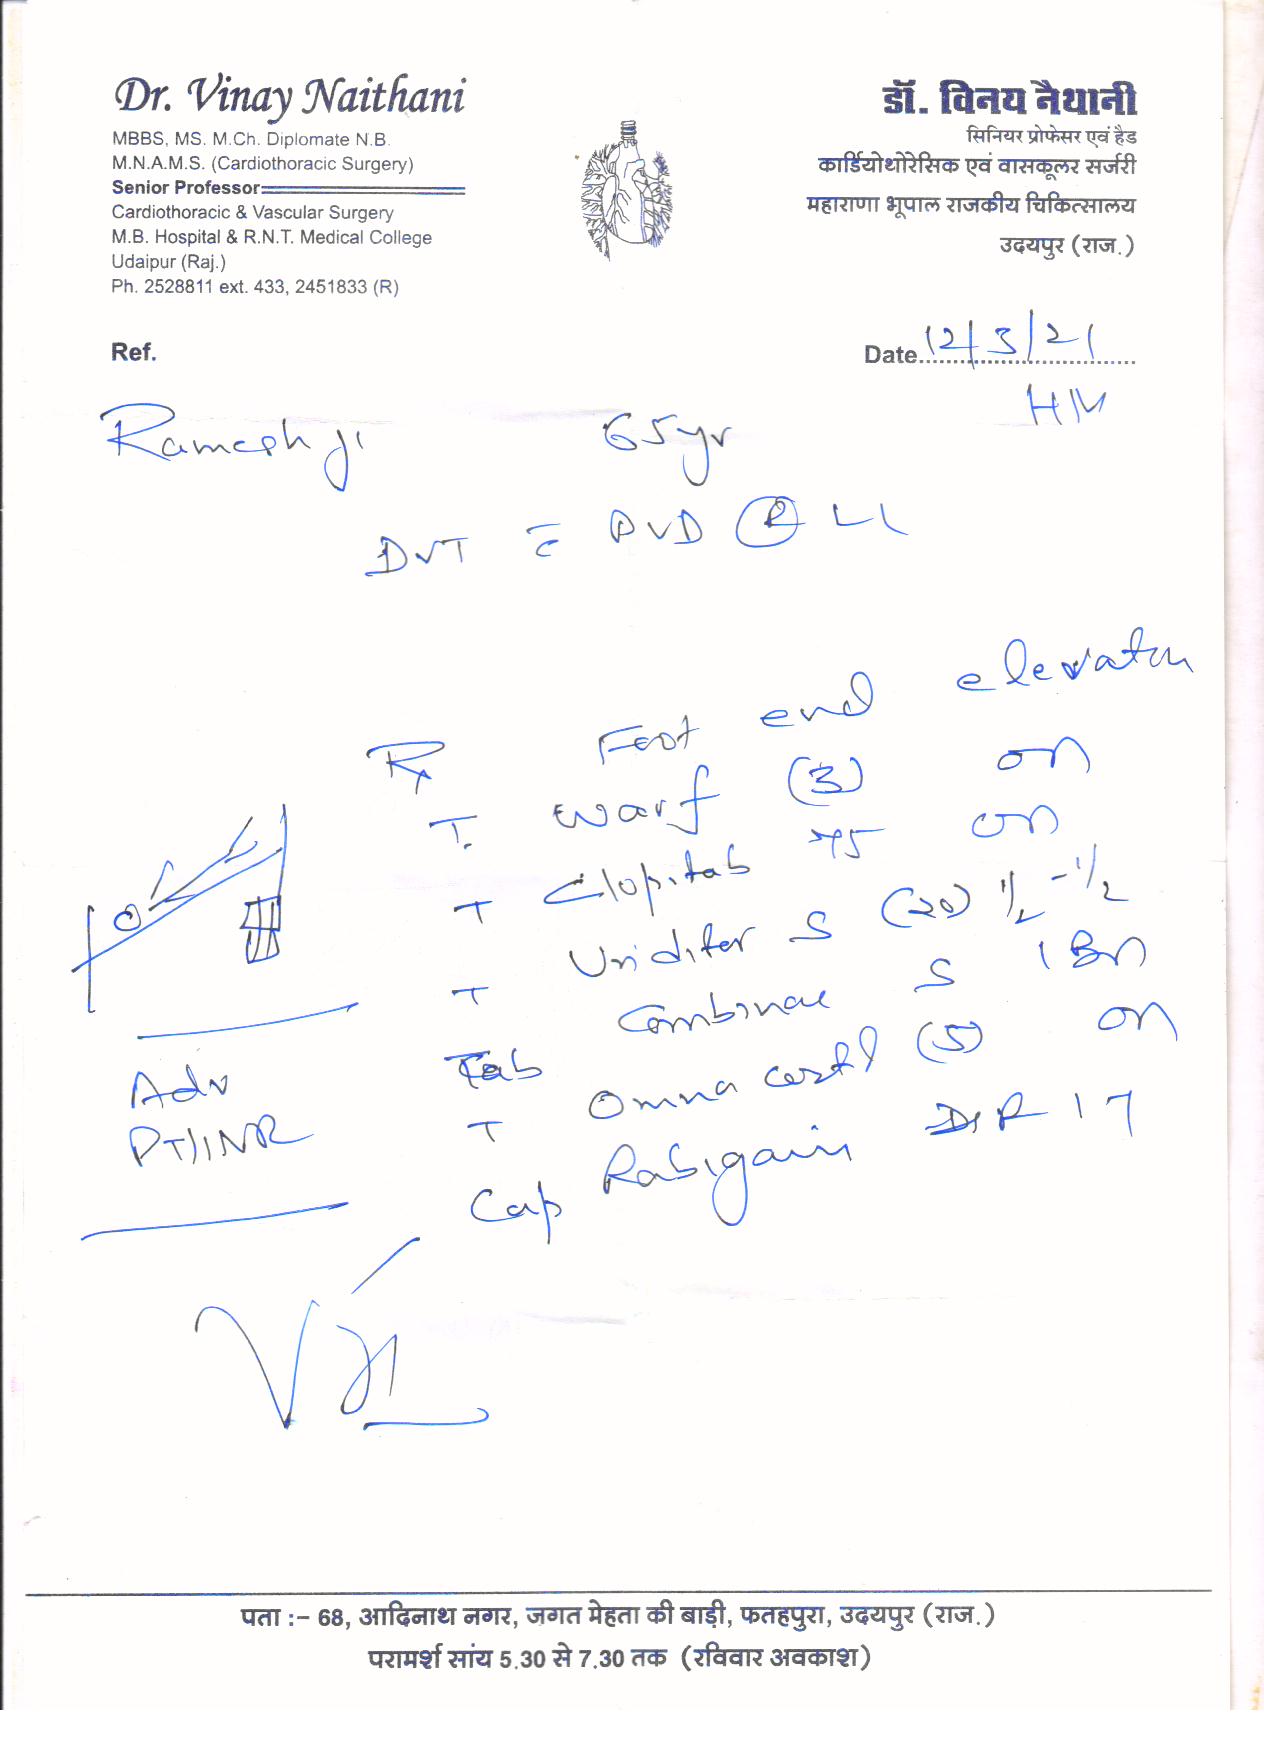 Dr. Vinay Naithani
MBBS, MS. M.Ch. Diplomate N.B.
M.N.A.M.S. (Cardiothoracic Surgery)
Senior Professor
Cardiothoracic & Vascular Surgery
M.B. Hospital & R.N.T. Medical College
Udaipur (Raj.)
Ph. 2528811 ext. 433, 2451833 (R)
डॉ. विनय नैथानी
सिनियर प्रोफेसर एवं हैड
कार्डियोथोरेसिक एवं वासकूलर सर्जरी
महाराणा भूपाल राजकीय चिकित्सालय
उदयपुर (राज.)
Ref.
Date 12/3/21
Ramesh ji 65yr
DVT c̄ PVD Ⓡ LL
Rx Foot end elevation
T. warf (3) on
T Clopitab 75 on
T Uniditor S (20) 1/2 - 1/2
Tab Combinac S 1 Bn
T Omnacortil (5) on
Cap Rabigain DSR 1 7
Adv
PT/INR
पता :- 68, आदिनाथ नगर, जगत मेहता की बाड़ी, फतहपुरा, उदयपुर (राज.)
परामर्श सांय 5.30 से 7.30 तक (रविवार अवकाश)